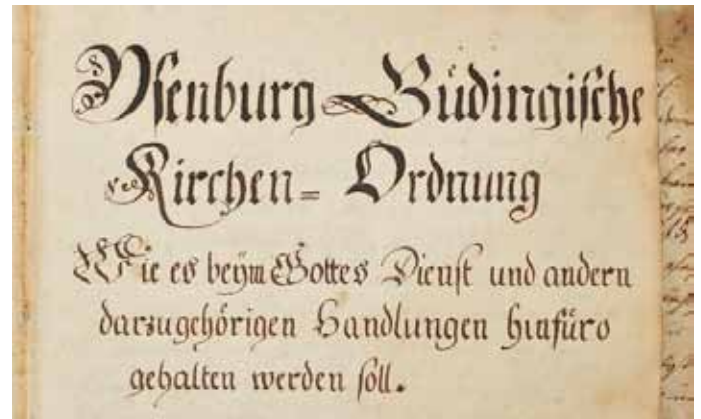 Ysenburg Büdingische
Kirchen= Ordnung
Wie es beÿm Gottes Dienst und andern
darzugehörigen Handlungen hinfüro
gehalten werden soll.
15